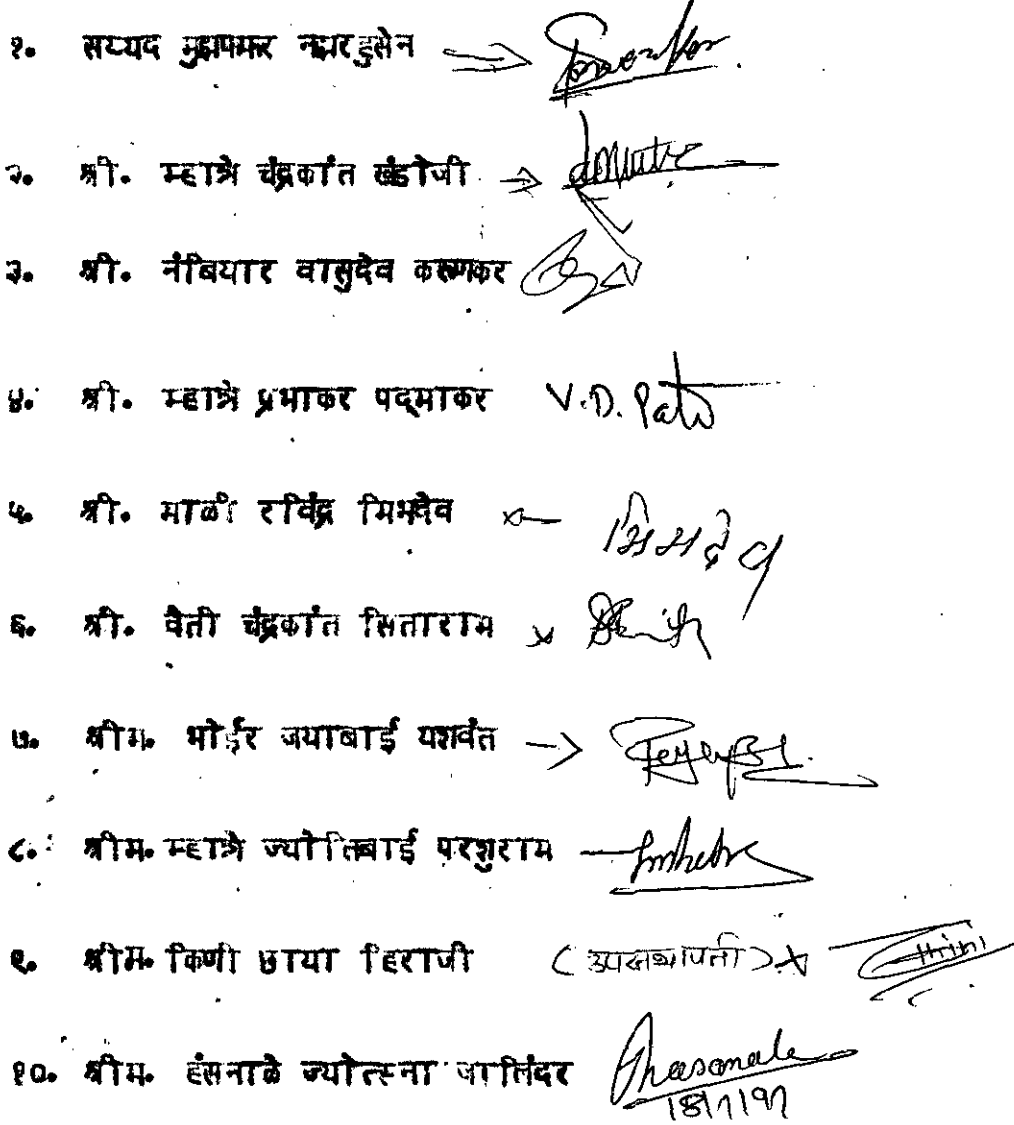 १. सय्यद मुझफ्फर नझरहुसेन
२. श्री. म्हात्रे चंद्रकांत खंडोजी
३. श्री. नंबियार वासुदेव करुणाकर
४. श्री. म्हात्रे प्रभाकर पद्माकर V.D. Patil
५. श्री. माळी रविंद्र भिमदेव भिमदेव
६. श्री. वैती चंद्रकांत सिताराम
७. श्रीम. भोईर जयाबाई यशवंत
८. श्रीम. म्हात्रे ज्योतिबाई परशुराम
९. श्रीम. किणी छाया हिराजी (उपसभापती)
१०. श्रीम. हंसनाळे ज्योत्स्ना जालिंदर